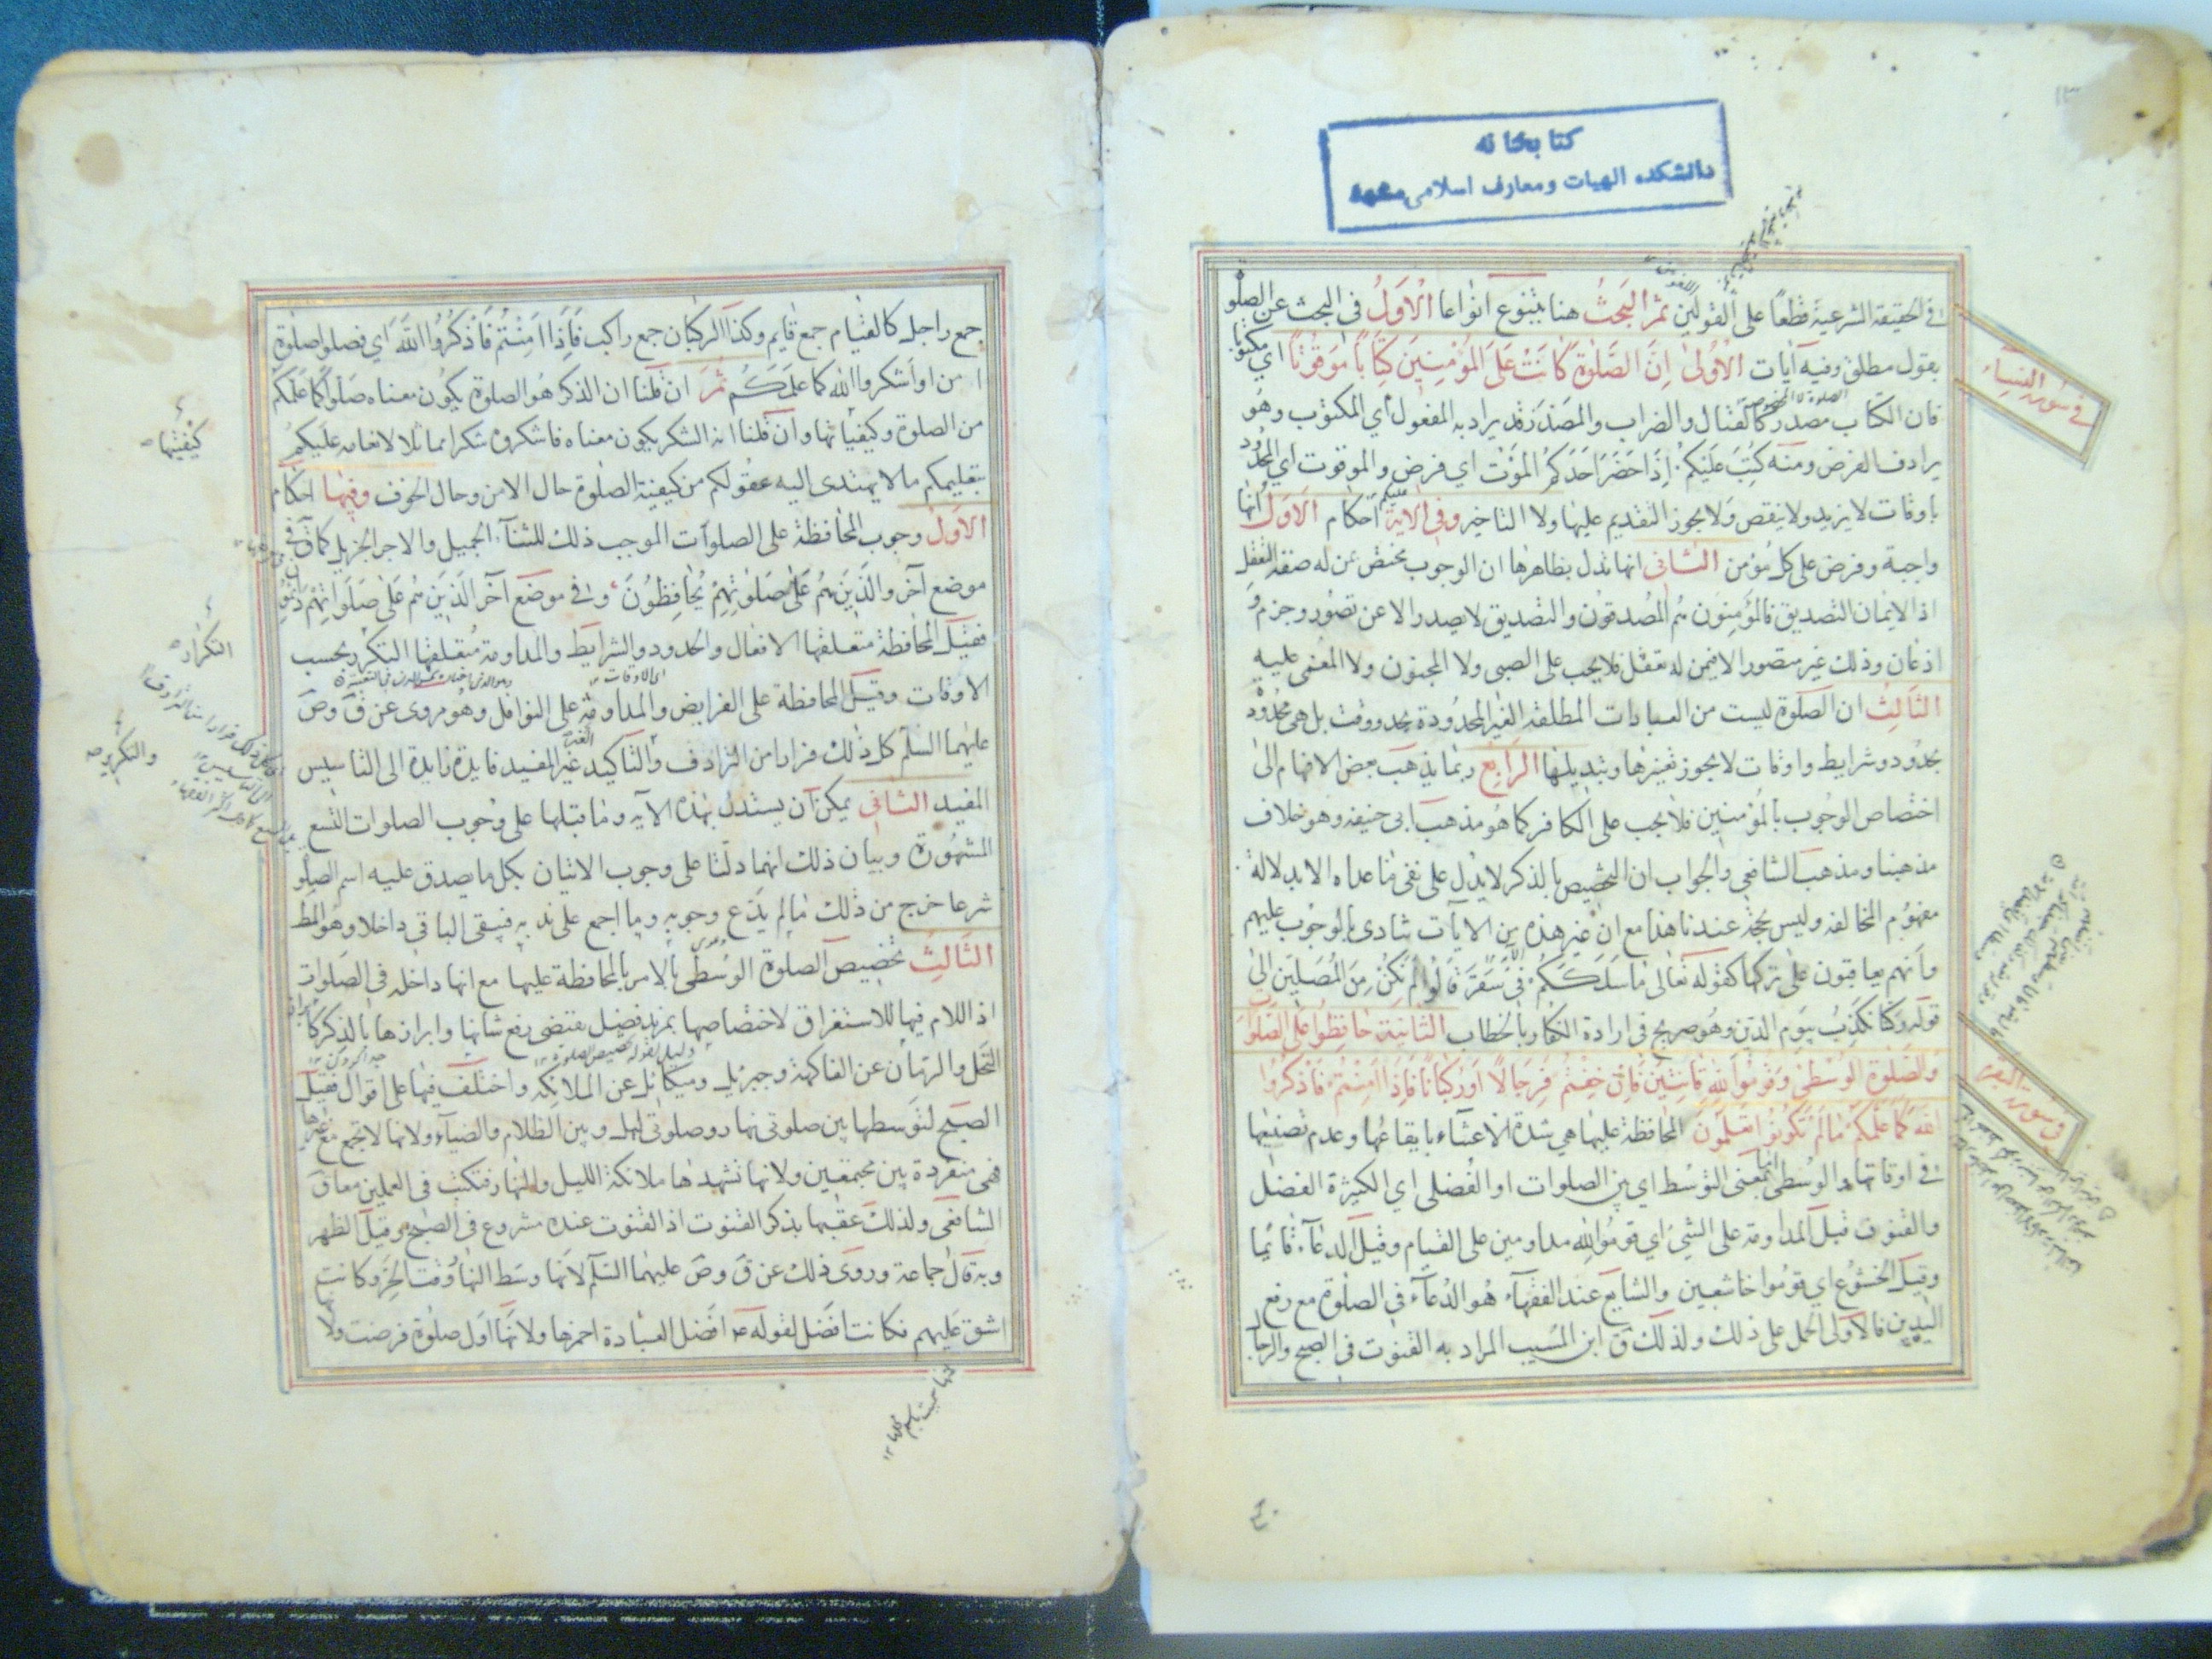 كتابخانه
دانشكده الهيات ومعارف اسلامى مشهد
فى الحقيقة الشرعية قطعًا على القولين ثم البحث هنا يتنوع انواعا الأول فى البحث عن الصلوة
بقول مطلق وفيه آيات الأولى ان الصلوة كانت على المؤمنين كتابا موقوتا اى مكتوبا
فان الكتاب مصدر كالقتال والضراب والمصدر قد يراد به المفعول اي المكتوب وهو
يرادف الفرض ومنه كتب عليكم اذا حضر احدكم الموت اي فرض والموقوت اي المحدود
باوقات لا يزيد ولا ينقص ولا يجوز التقديم عليها ولا التاخير وفى الاية احكام الاول انها
واجبة وفرض على كل مؤمن الثانى انها تدل بظاهرها ان الوجوب مختص بمن له صفة التعقل
اذ الايمان التصديق فالمؤمنون هم المصدقون والتصديق لا يصدر الا عن تصور وجزم و
اذعان وذلك غير متصور الا فيمن له تعقل فلا يجب على الصبى ولا المجنون ولا المغمى عليه
الثالث ان الصلوة ليست من العبادات المطلقة الغير المحدودة بحد ووقت بل هى محدودة
بحدود وشرايط واوقات لا يجوز تغييرها وتبديلها الرابع ربما يذهب بعض الافهام الى
اختصاص الوجوب بالمؤمنين فلا يجب على الكافر كما هو مذهب ابى حنيفة وهو خلاف
مذهبنا ومذهب الشافعي والجواب ان التخصيص بالذكر لا يدل على نفى ما عداه الا بدلالة
مفهوم المخالفة وليس بحجة عندنا هذا مع ان غير هذه من الايات تنادى بالوجوب عليهم
وانهم يعاقبون على تركها كقوله تعالى ما سلككم فى سقر قالوا لم نك من المصلين الى
قوله وكنا نكذب بيوم الدين وهو صريح فى ارادة الكفار بالخطاب الثانية حافظوا على الصلوات
والصلوة الوسطى وقوموا لله قانتين فان خفتم فرجالا او ركبانا فاذا امنتم فاذكروا
الله كما علمكم ما لم تكونوا تعلمون المحافظة عليها هى شدة الاعتناء بايقاعها وعدم تضييعها
فى اوقاتها والوسطى بمعنى التوسط اى بين الصلوات او الفضلى اي الكثيرة الفضل
والقنوت قيل المداومة على الشئ اي قوموا لله مداومين على القيام وقيل الدعاء قائما
وقيل الخشوع اي قوموا خاشعين والشايع عند الفقهاء هو الدعاء في الصلوة مع رفع
اليدين فالاولى الحمل على ذلك ولذلك ق ابن المسيب المراد به القنوت فى الصبح والرجال
فى سورة النساء
فى سورة البقرة
جمع راجل كالقيام جمع قايم وكذا الركبان جمع راكب فاذا امنتم فاذكروا الله اي فصلوا صلوة
من او اشكروا الله كما علمكم ثم ان قلنا ان الذكر هو الصلوة يكون معناه صلوا كما علمكم
من الصلوة وكيفياتها وان قلنا انه الشكر يكون معناه فاشكروه شكرا مماثلا لانعامه عليكم
بتعليمكم ما لا يهتدى اليه عقولكم من كيفية الصلوة حال الامن وحال الخوف وفيها احكام
الاول وجوب المحافظة على الصلوات الموجب ذلك للثناء الجميل والاجر الجزيل كما ق فى
موضع آخر والذين هم على صلوتهم يحافظون وفى موضع آخر الذين هم على صلواتهم دائمون
فقيل المحافظة متعلقها الافعال والحدود والشرايط والمداومة متعلقها التكرر بحسب
الاوقات وقيل المحافظة على الفرايض والمداومة على النوافل وهو مروى عن ق و ص
عليهما السلم كل ذلك فرارا من الترادف والتاكيد غير المفيد فايدة زايدة الى التاسيس
المفيد الثانى يمكن ان يستدل بهذه الآيه وما قبلها على وجوب الصلوات التسع
المشهورة وبيان ذلك انهما دلتا على وجوب الاتيان بكل ما يصدق عليه اسم الصلوة
شرعا خرج من ذلك ما لم يدع وجوبه وما اجمع على ندبه فيبقى الباقى داخلا وهو المط
الثالث تخصيص الصلوة الوسطى بالامر بالمحافظة عليها مع انها داخله فى الصلوات
اذ اللام فيها للاستغراق لاختصاصها بمزيد فضيل يقتضى رفع شانها وابرازها بالذكر كابراز
النخل والرمان عن الفاكهة وجبريل وميكائل عن الملائكة واختلف فيها على اقوال فقيل
الصبح لتوسطها بين صلوتى نهار وصلوتى ليل وبين الظلام والضياء ولانها لا تجمع مع غيرها
فهى منفردة بين مجتمعين ولانها تشهدها ملائكة الليل والنهار فتكتب فى العملين معا ق
الشافعى ولذلك عقبها بذكر القنوت اذ القنوت عنده مشروع فى الصبح وقيل الظهر
وبه قال جماعة وروى ذلك عن ق و ص عليهما السلم لانها وسط النهار وقت الحر وكانت
اشق عليهم فكانت افضل لقوله ع افضل العبادة احمزها ولانها اول صلوة فرضت ولا
كيفيتها
التكرار
والتكرير